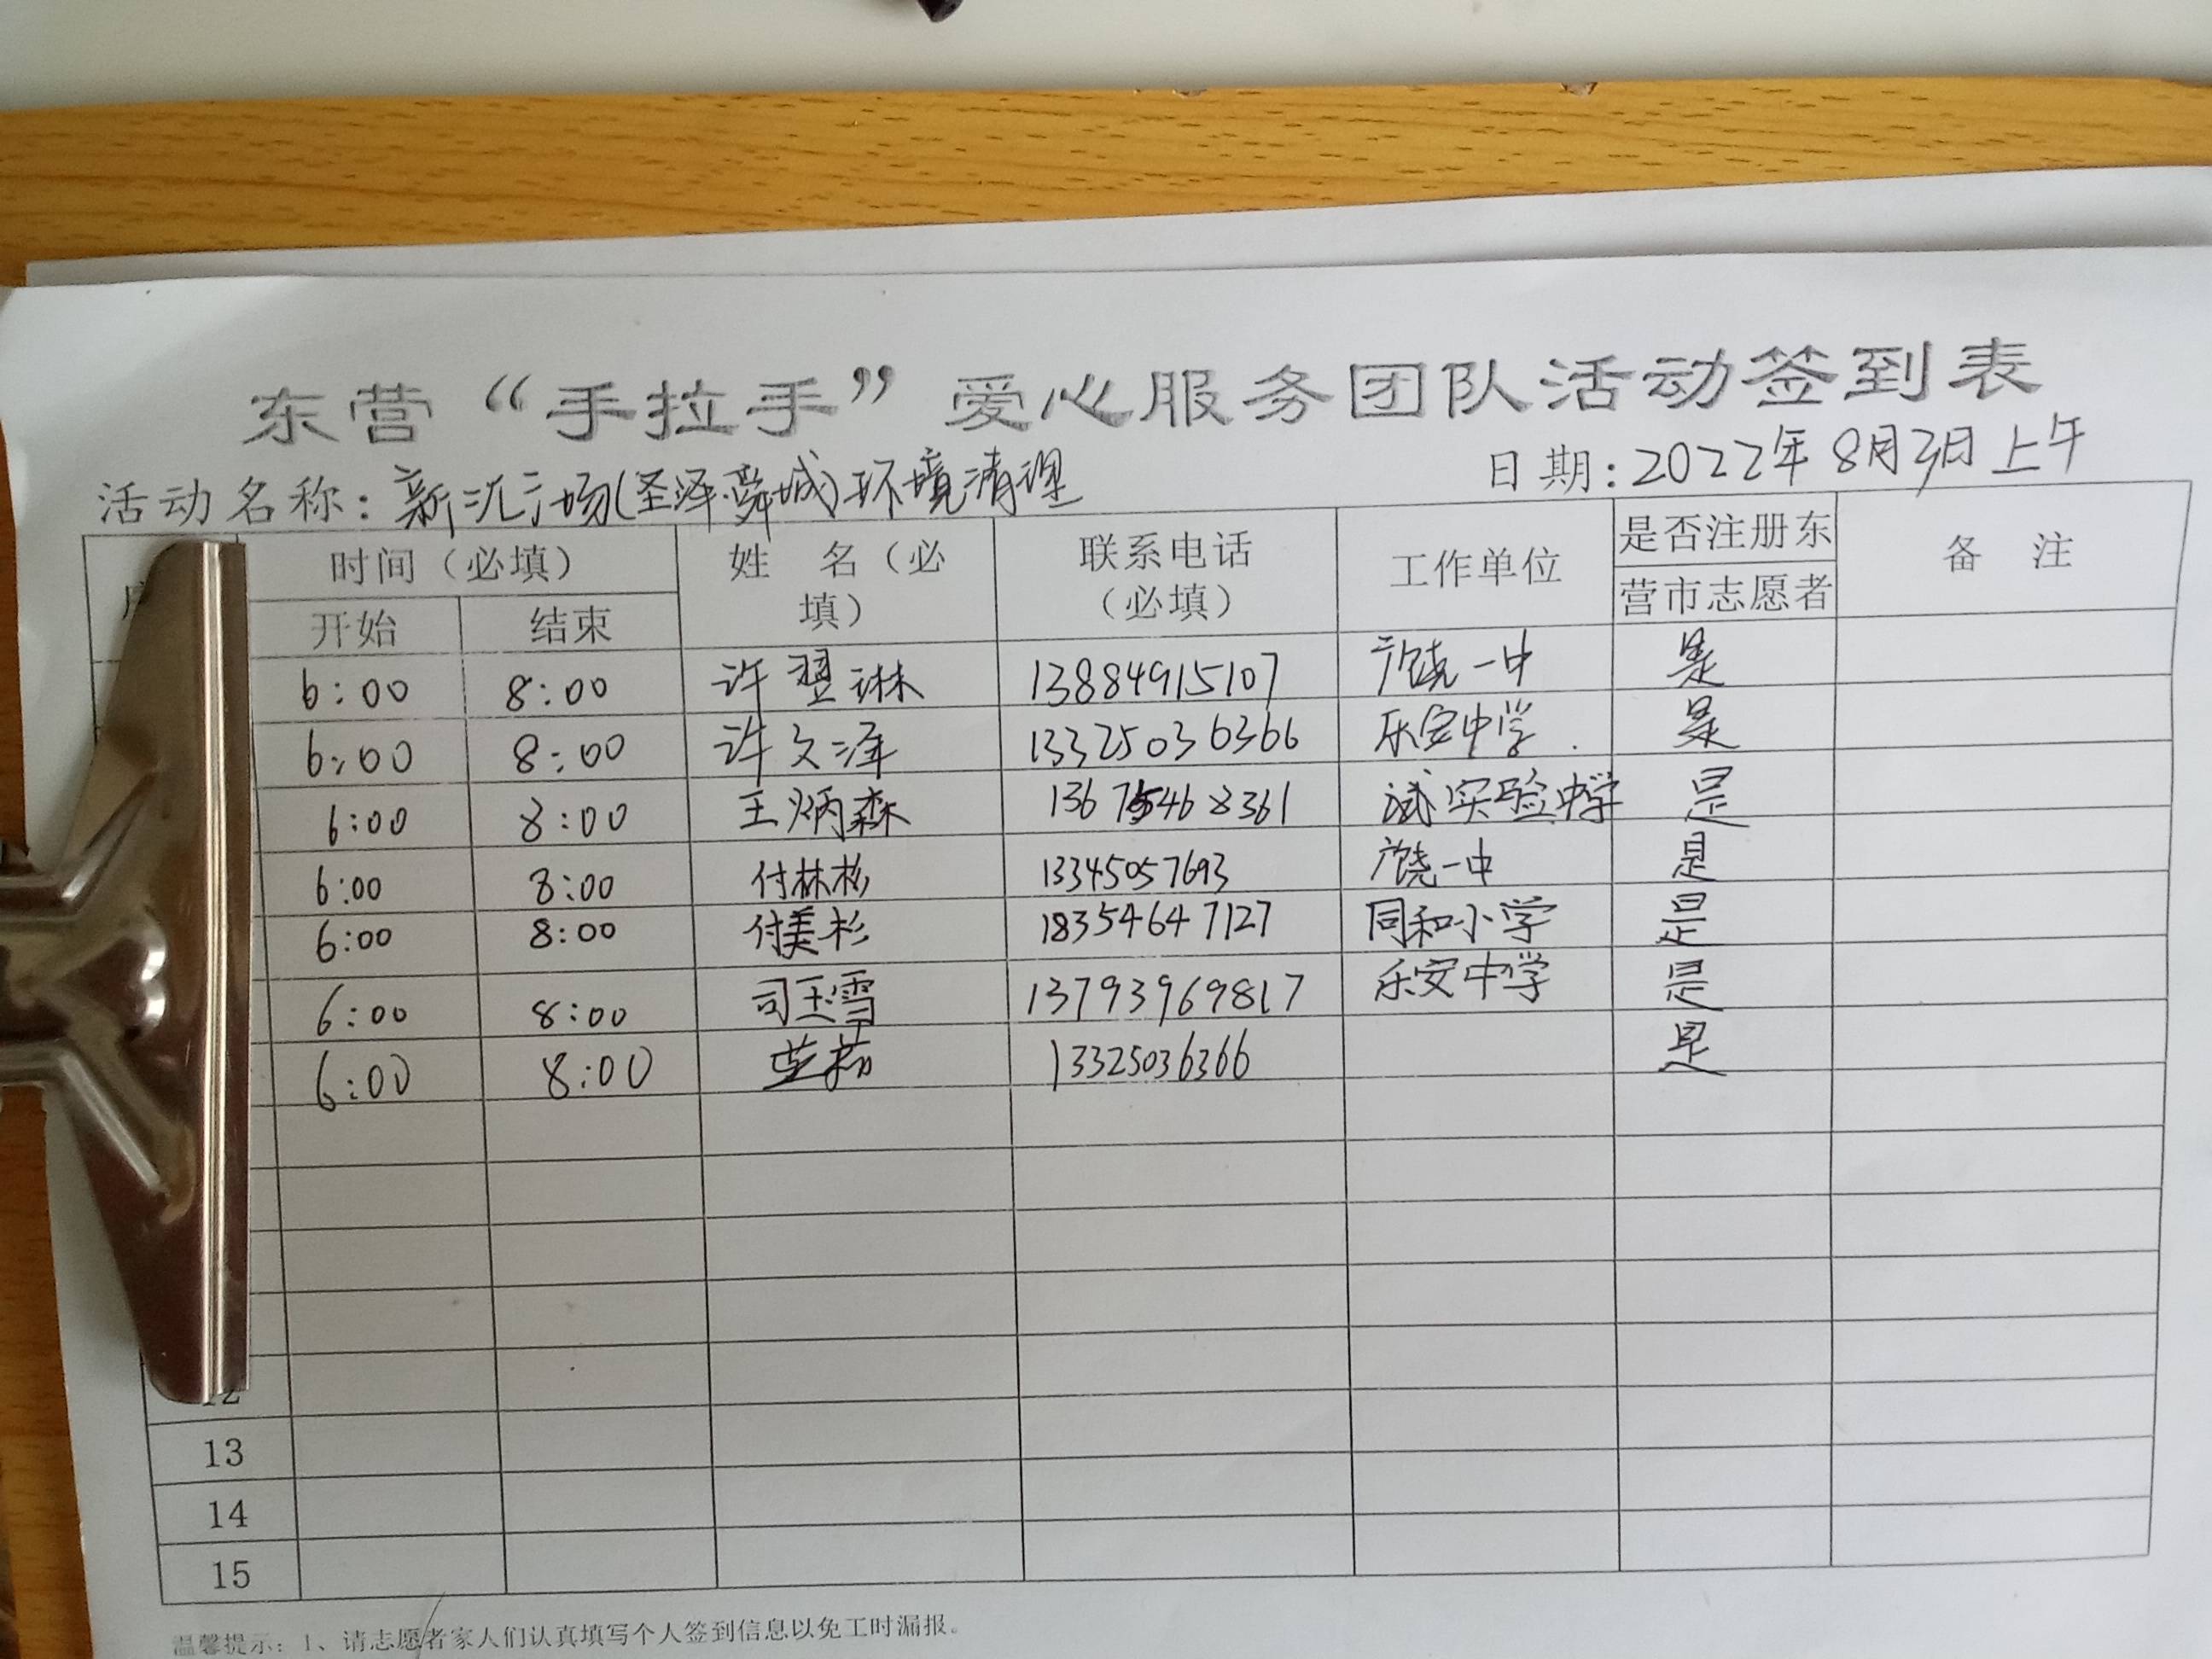 东营“手拉手”爱心服务团队活动签到表
活动名称：新沉广场(圣泽舜城)环境清理 日期：2022年8月3日上午
时间（必填） 姓 名（必填） 联系电话（必填） 工作单位 是否注册东营市志愿者 备 注
开始 结束
6:00 8:00 许翌琳 13884915107 广饶一中 是
6:00 8:00 许文泽 13325036366 乐安中学 是
6:00 8:00 王炳森 13675468361 实验中学 是
6:00 8:00 付林杉 13345057693 广饶一中 是
6:00 8:00 付美杉 18354647127 同和小学 是
6:00 8:00 司玉雪 13793969817 乐安中学 是
6:00 8:00 13325036366 是
13
14
15
温馨提示：1、请志愿者家人们认真填写个人签到信息以免工时漏报。